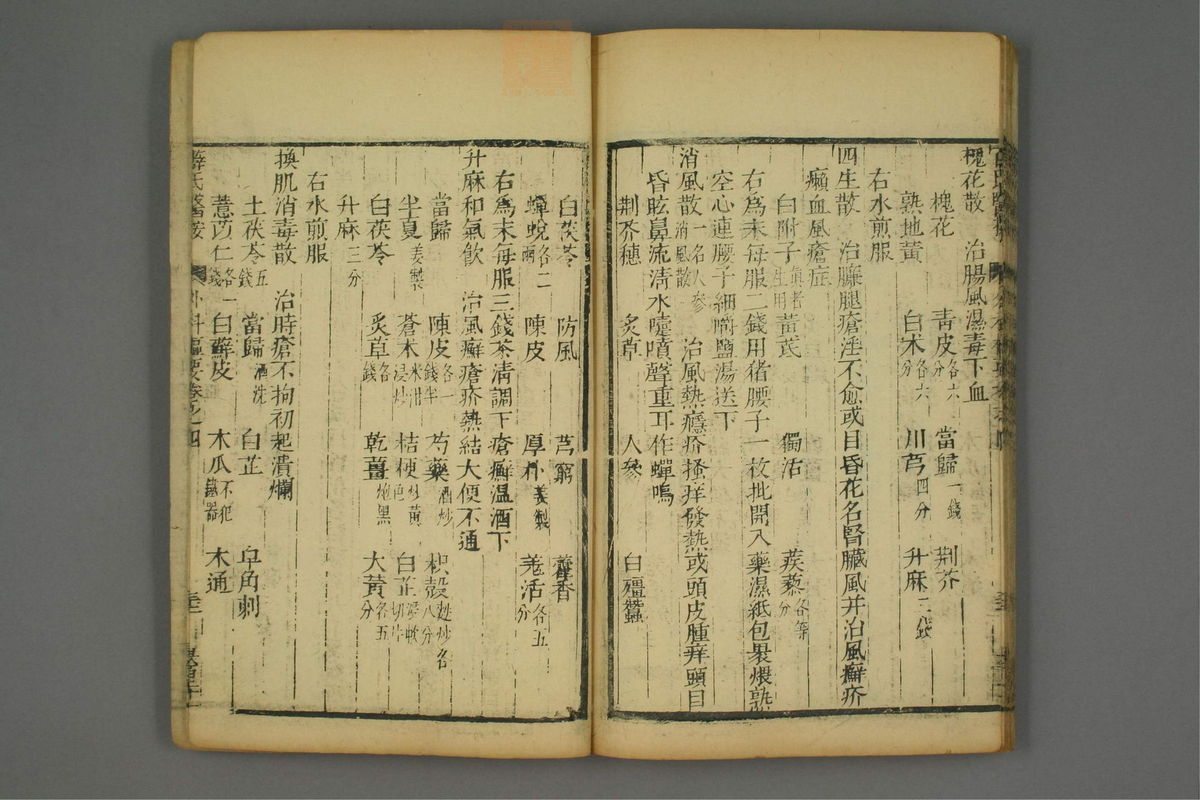 槐花散　治腸風濕毒下血
槐花　青皮各六分　當歸一錢　荆芥
熟地黃　白术各六分　川芎四分　升麻
右水煎服
四生散　治臁腿瘡淫不愈或目昏花名腎臟風并治風癬疥
癩血風瘡症
白附子　生用　黃芪　獨活　蒺藜各等分
右爲末每服二錢用猪腰子一枚批開入藥濕紙包裹煨熟
空心連腰子細嚼鹽湯送下
消風散一名人參消風散　治風熱癮疹搔痒發熱或頭皮腫痒頭目
昏眩鼻流清水嚏噴聲重耳作蟬鳴
荆芥穗　炙草　人參　白殭蠶
白茯苓　防風　芎藭　藿香
蟬蛻各二兩　陳皮　厚朴姜製　羗活各五分
右爲末每服三錢茶清調下瘡癬温酒下
升麻和氣飲　治風癬瘡疥熱結大便不通
當歸　陳皮各一錢半　芍藥酒炒　枳殼麸炒各八分
半夏姜製　蒼术米泔浸炒　桔梗炒黃色　白芷切片
白茯苓　炙草各錢　乾薑炮黑　大黃各五分
升麻三分
右水煎服
換肌消毒散　治時瘡不拘初起潰爛
土茯苓五錢　當歸酒洗　白芷　皁角刺
薏苡仁各一錢　白蘚皮　木瓜不犯鐵器　木通
薛氏醫按　外科樞要卷之四